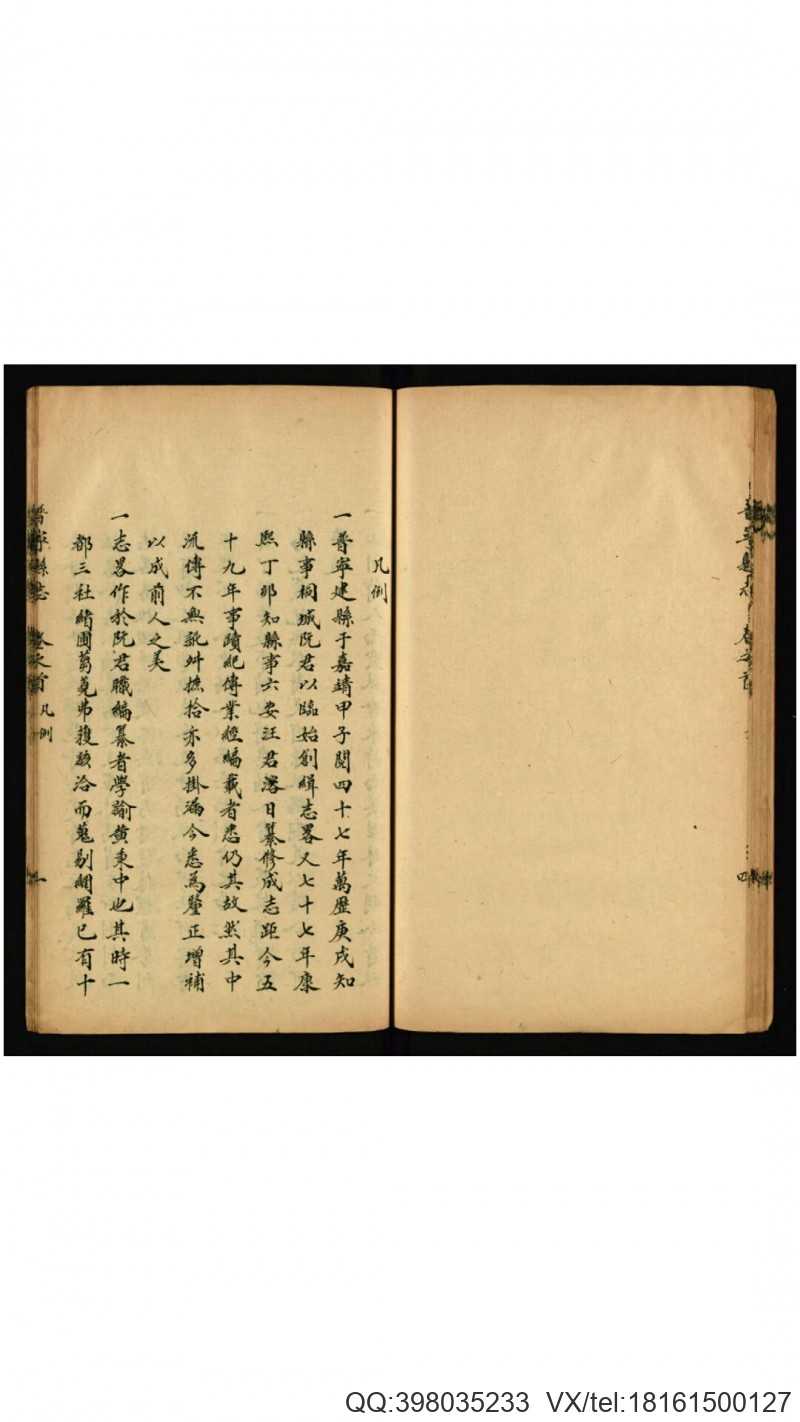 凡例
一普寧建縣于嘉靖甲子閱四十七年萬歷庚戌知
縣事桐城阮君以臨始創緝志畧又七十七年康
熙丁卯知縣事六安汪君溶日纂修成志距今五
十九年事蹟紀傳業經編載者悉仍其故然其中
流傳不無訛舛摭拾亦多掛漏今悉為釐正增補
以成前人之美
一志畧作於阮君職編纂者學諭黄秉中也其時一
都三社緒圃蒭蕘弗獲
洽而蒐剔網羅已有十
普寧縣志 卷之首 凡例 一
普寧縣志 卷之首
四
QQ:398035233 VX/tel:18161500127